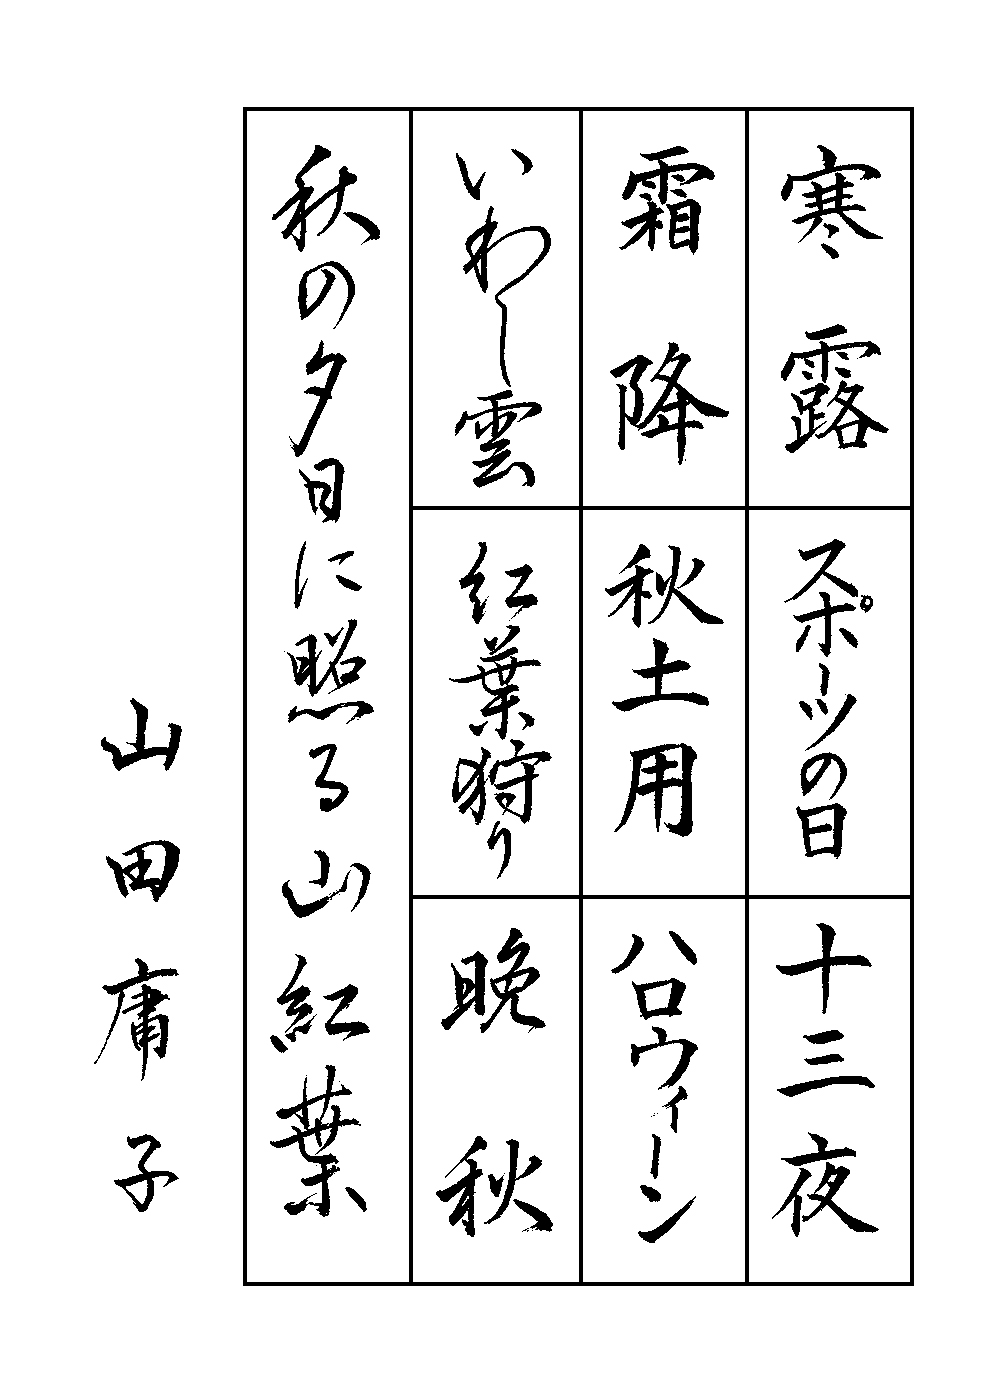 寒露
スポーツの日
十三夜
霜降
秋土用
ハロウィーン
いわし雲
紅葉狩り
晩秋
秋の夕日に照る山紅葉
山田庸子